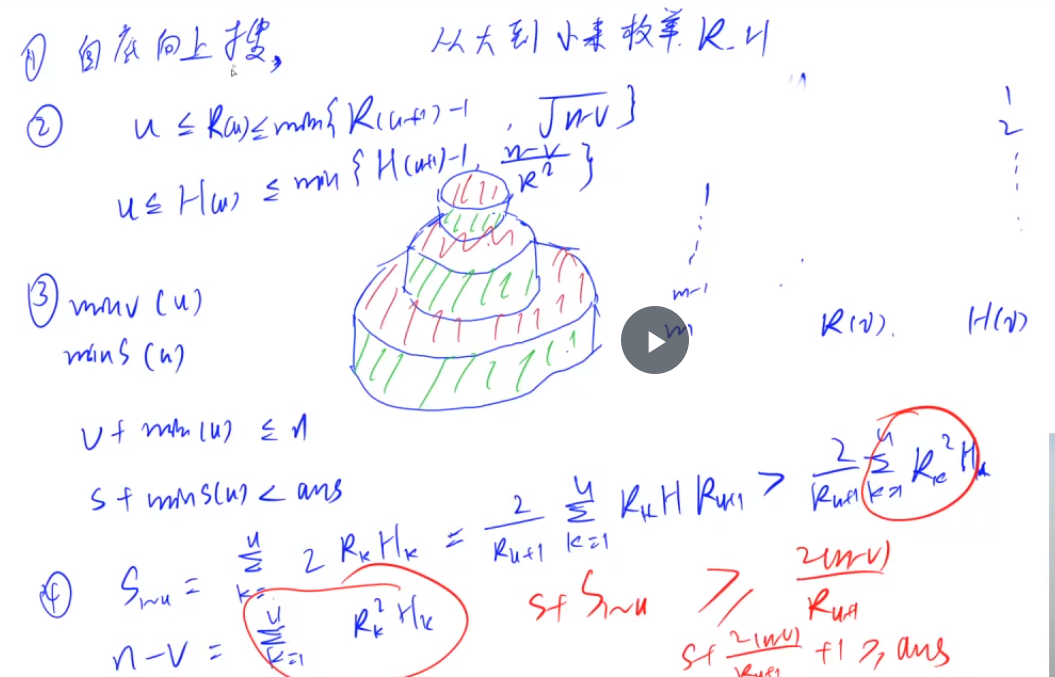 ① 自底向上搜,  从大到小来枚举 R.H
② u ≤ R(u) ≤ min{ R(u+1)-1 , √n-v }
u ≤ H(u) ≤ min { H(u+1)-1, n-v/R² }
1
2
1
m-1
m
R(v).  H(v)
③ minv(u)
mins(u)
v + min(u) ≤ n
s + mins(u) < ans
④ S₁~u = Σ(k=1..u) 2 RₖHₖ = 2/Rᵤ₊₁ Σ(k=1..u) RₖH Rᵤ₊₁ > 2/Rᵤ₊₁ Σ(k=1..u) Rₖ²Hₖ
n-v = Σ(k=1..u) Rₖ²Hₖ
s+ S₁~u ≥ 2(n-v)/Rᵤ₊₁
s+ 2(n-v)/Rᵤ₊₁ +1 ≥ ans